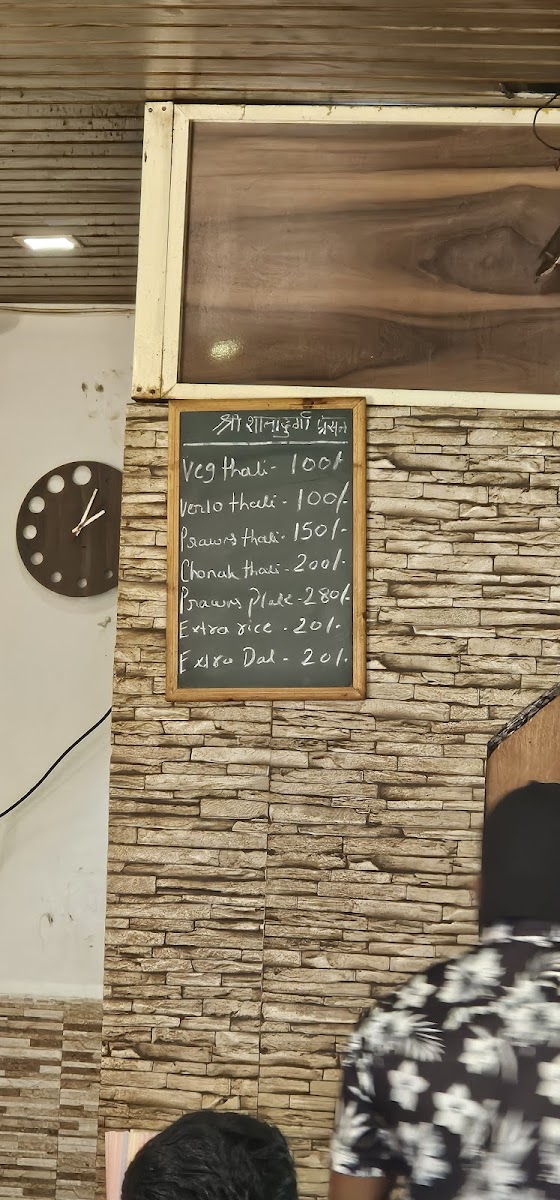 श्री शांतादुर्गा प्रसन्न
Veg thali - 100/-
Verlo thali - 100/-
Prawns thali - 150/-
Chonak thali - 200/-
Prawns Plate - 280/-
Extra rice - 20/-
Extra Dal - 20/-